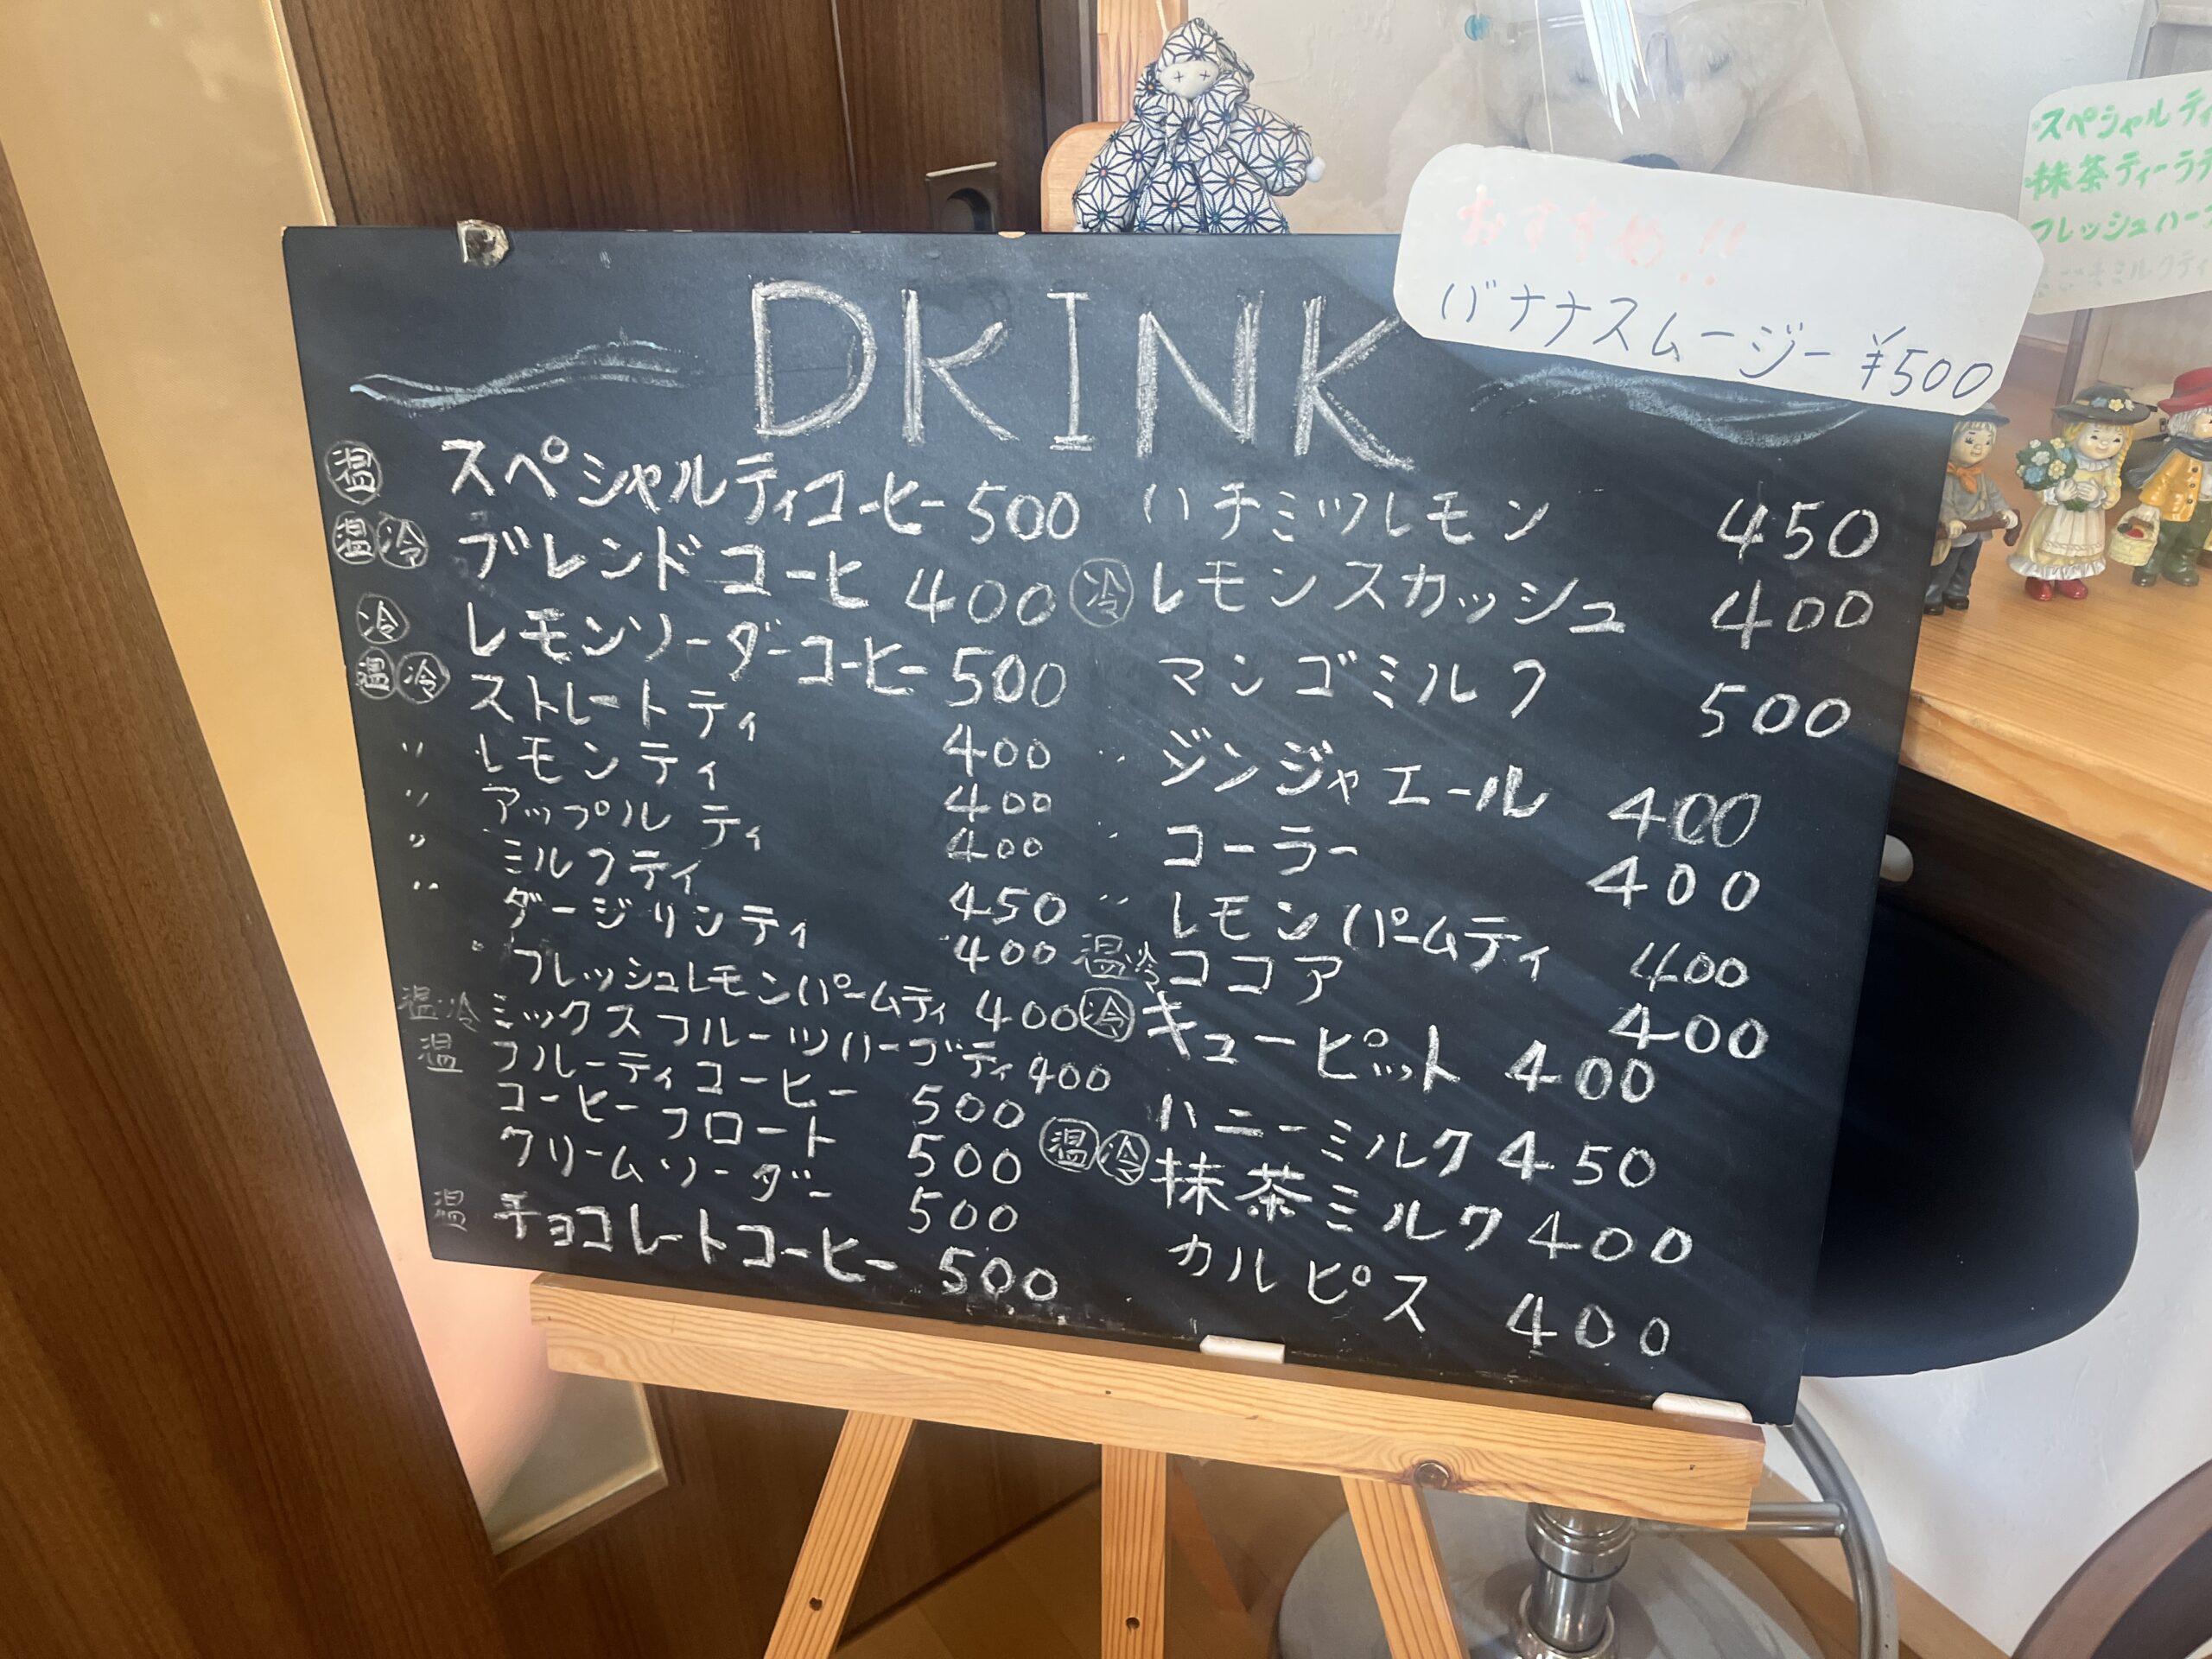 DRINK
おすすめ!!
バナナスムージー ¥500
温 スペシャルティコーヒー 500
温 冷 ブレンドコーヒ 400
冷 レモンソーダーコーヒー 500
温 冷 ストレートティ 400
〃 レモンティ 400
〃 アップルティ 400
〃 ミルクティ 450
〃 ダージリンティ 400
フレッシュレモンバームティ 400
温・冷 ミックスフルーツハーブティ 400
温 フルーティコーヒー 500
コーヒーフロート 500
クリームソーダー 500
温 チョコレートコーヒー 500
ハチミツレモン 450
冷 レモンスカッシュ 400
マンゴミルク 500
〃 ジンジャエール 400
〃 コーラー 400
〃 レモンバームティ 400
温・冷 ココア 400
冷 キューピット 400
ハニーミルク 450
温 冷 抹茶ミルク 400
カルピス 400
スペシャルティ
抹茶ティーラテ
フレッシュハー
ミルクティ